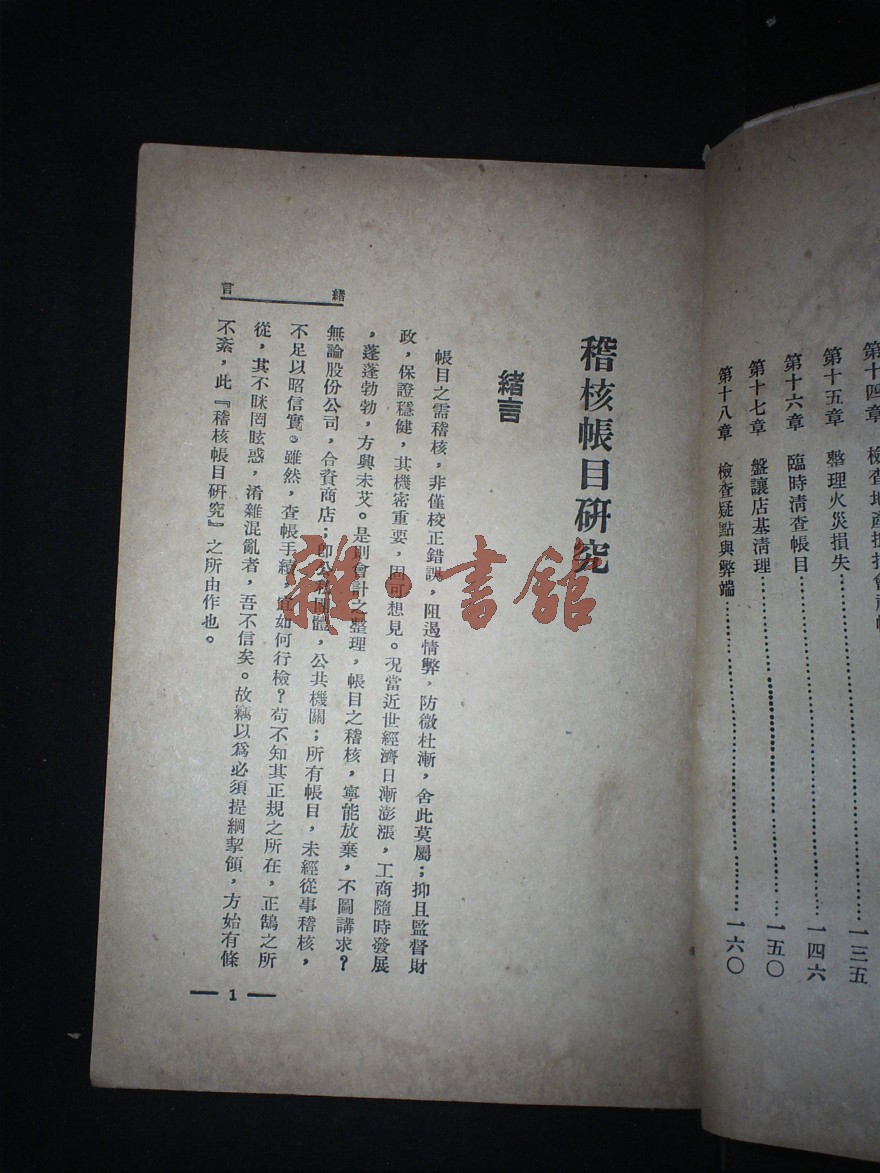 第十五章 整理火災損失……一三五
第十六章 臨時清查帳目……一四六
第十七章 盤讓店基清理……一五〇
第十八章 檢查疑點與弊端……一六〇
稽核帳目研究
緒言
帳目之需稽核，非僅校正錯誤，阻遏情弊，防微杜漸，舍此莫屬；抑且監督財
政，保證穩健，其機密重要，固可想見。况當近世經濟日漸澎漲，工商隨時發展
，蓬蓬勃勃，方興未艾。是則會計之整理，帳目之稽核，寧能放棄，不圖講求？
無論股份公司，合資商店；即公務團體，公共機關；所有帳目，未經從事稽核，
不足以昭信實。雖然，查帳手續，宜如何行檢？苟不知其正規之所在，正鵠之所
從，其不眯罔眩惑，淆雜混亂者，吾不信矣。故竊以爲必須提綱挈領，方始有條
不紊，此『稽核帳目研究』之所由作也。
緒言
— 1 —
雜·書館